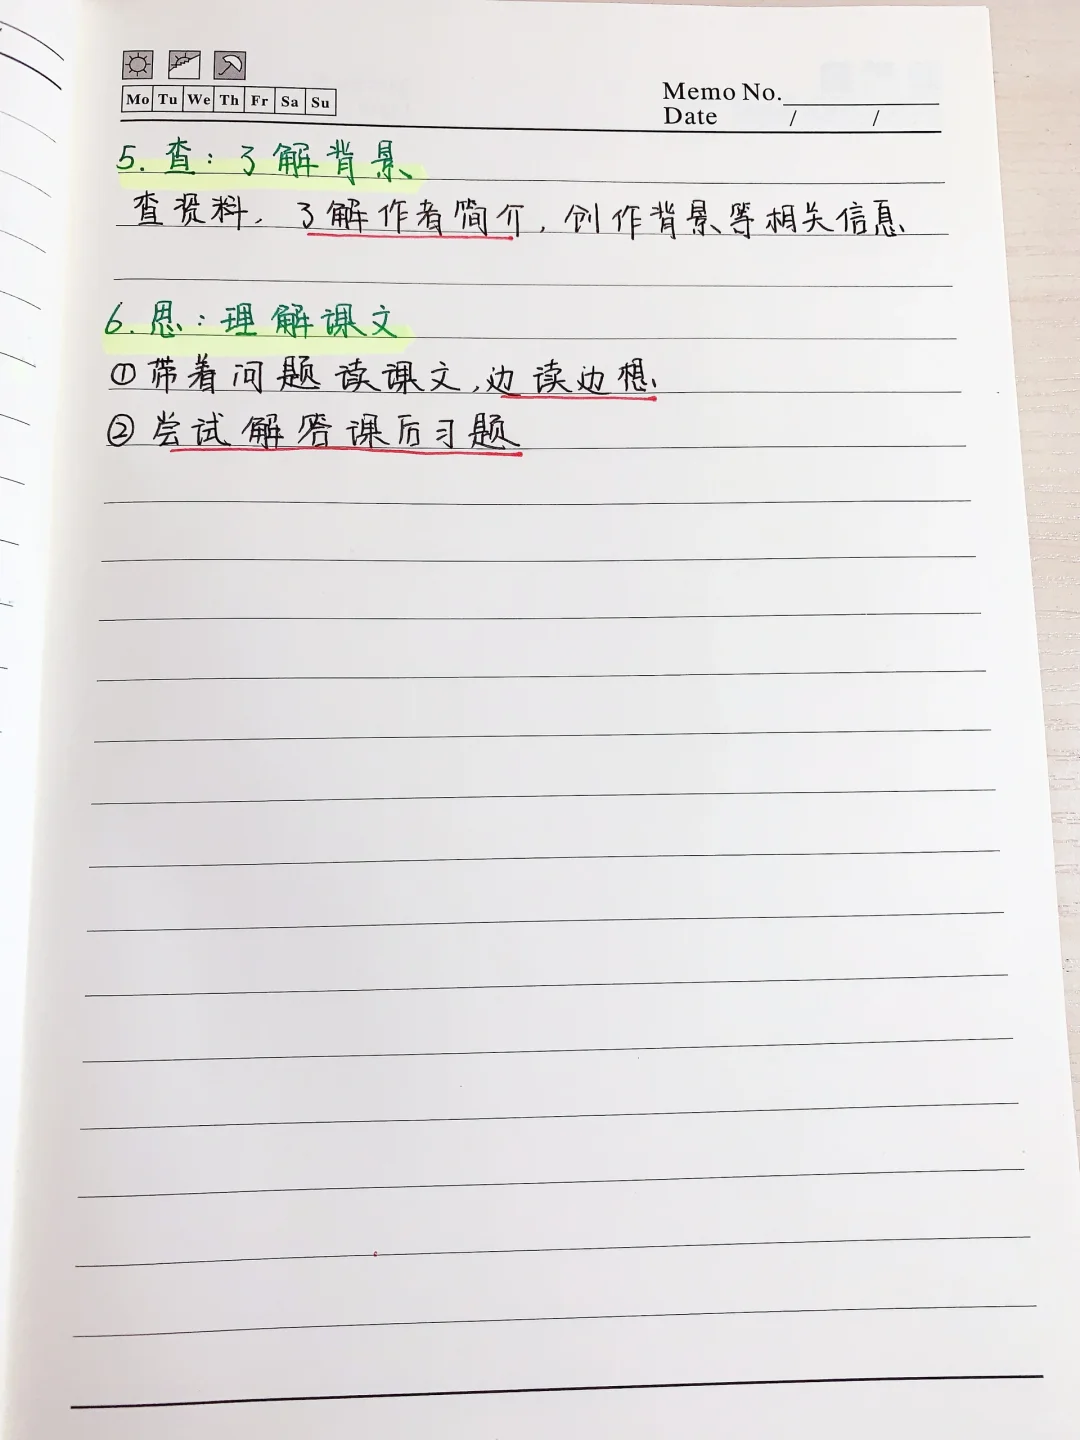 Mo Tu We Th Fr Sa Su
Memo No.
Date / /
5. 查：了解背景
查资料，了解作者简介，创作背景等相关信息、
6. 思：理解课文
①带着问题读课文，边读边想、
②尝试解答课后习题